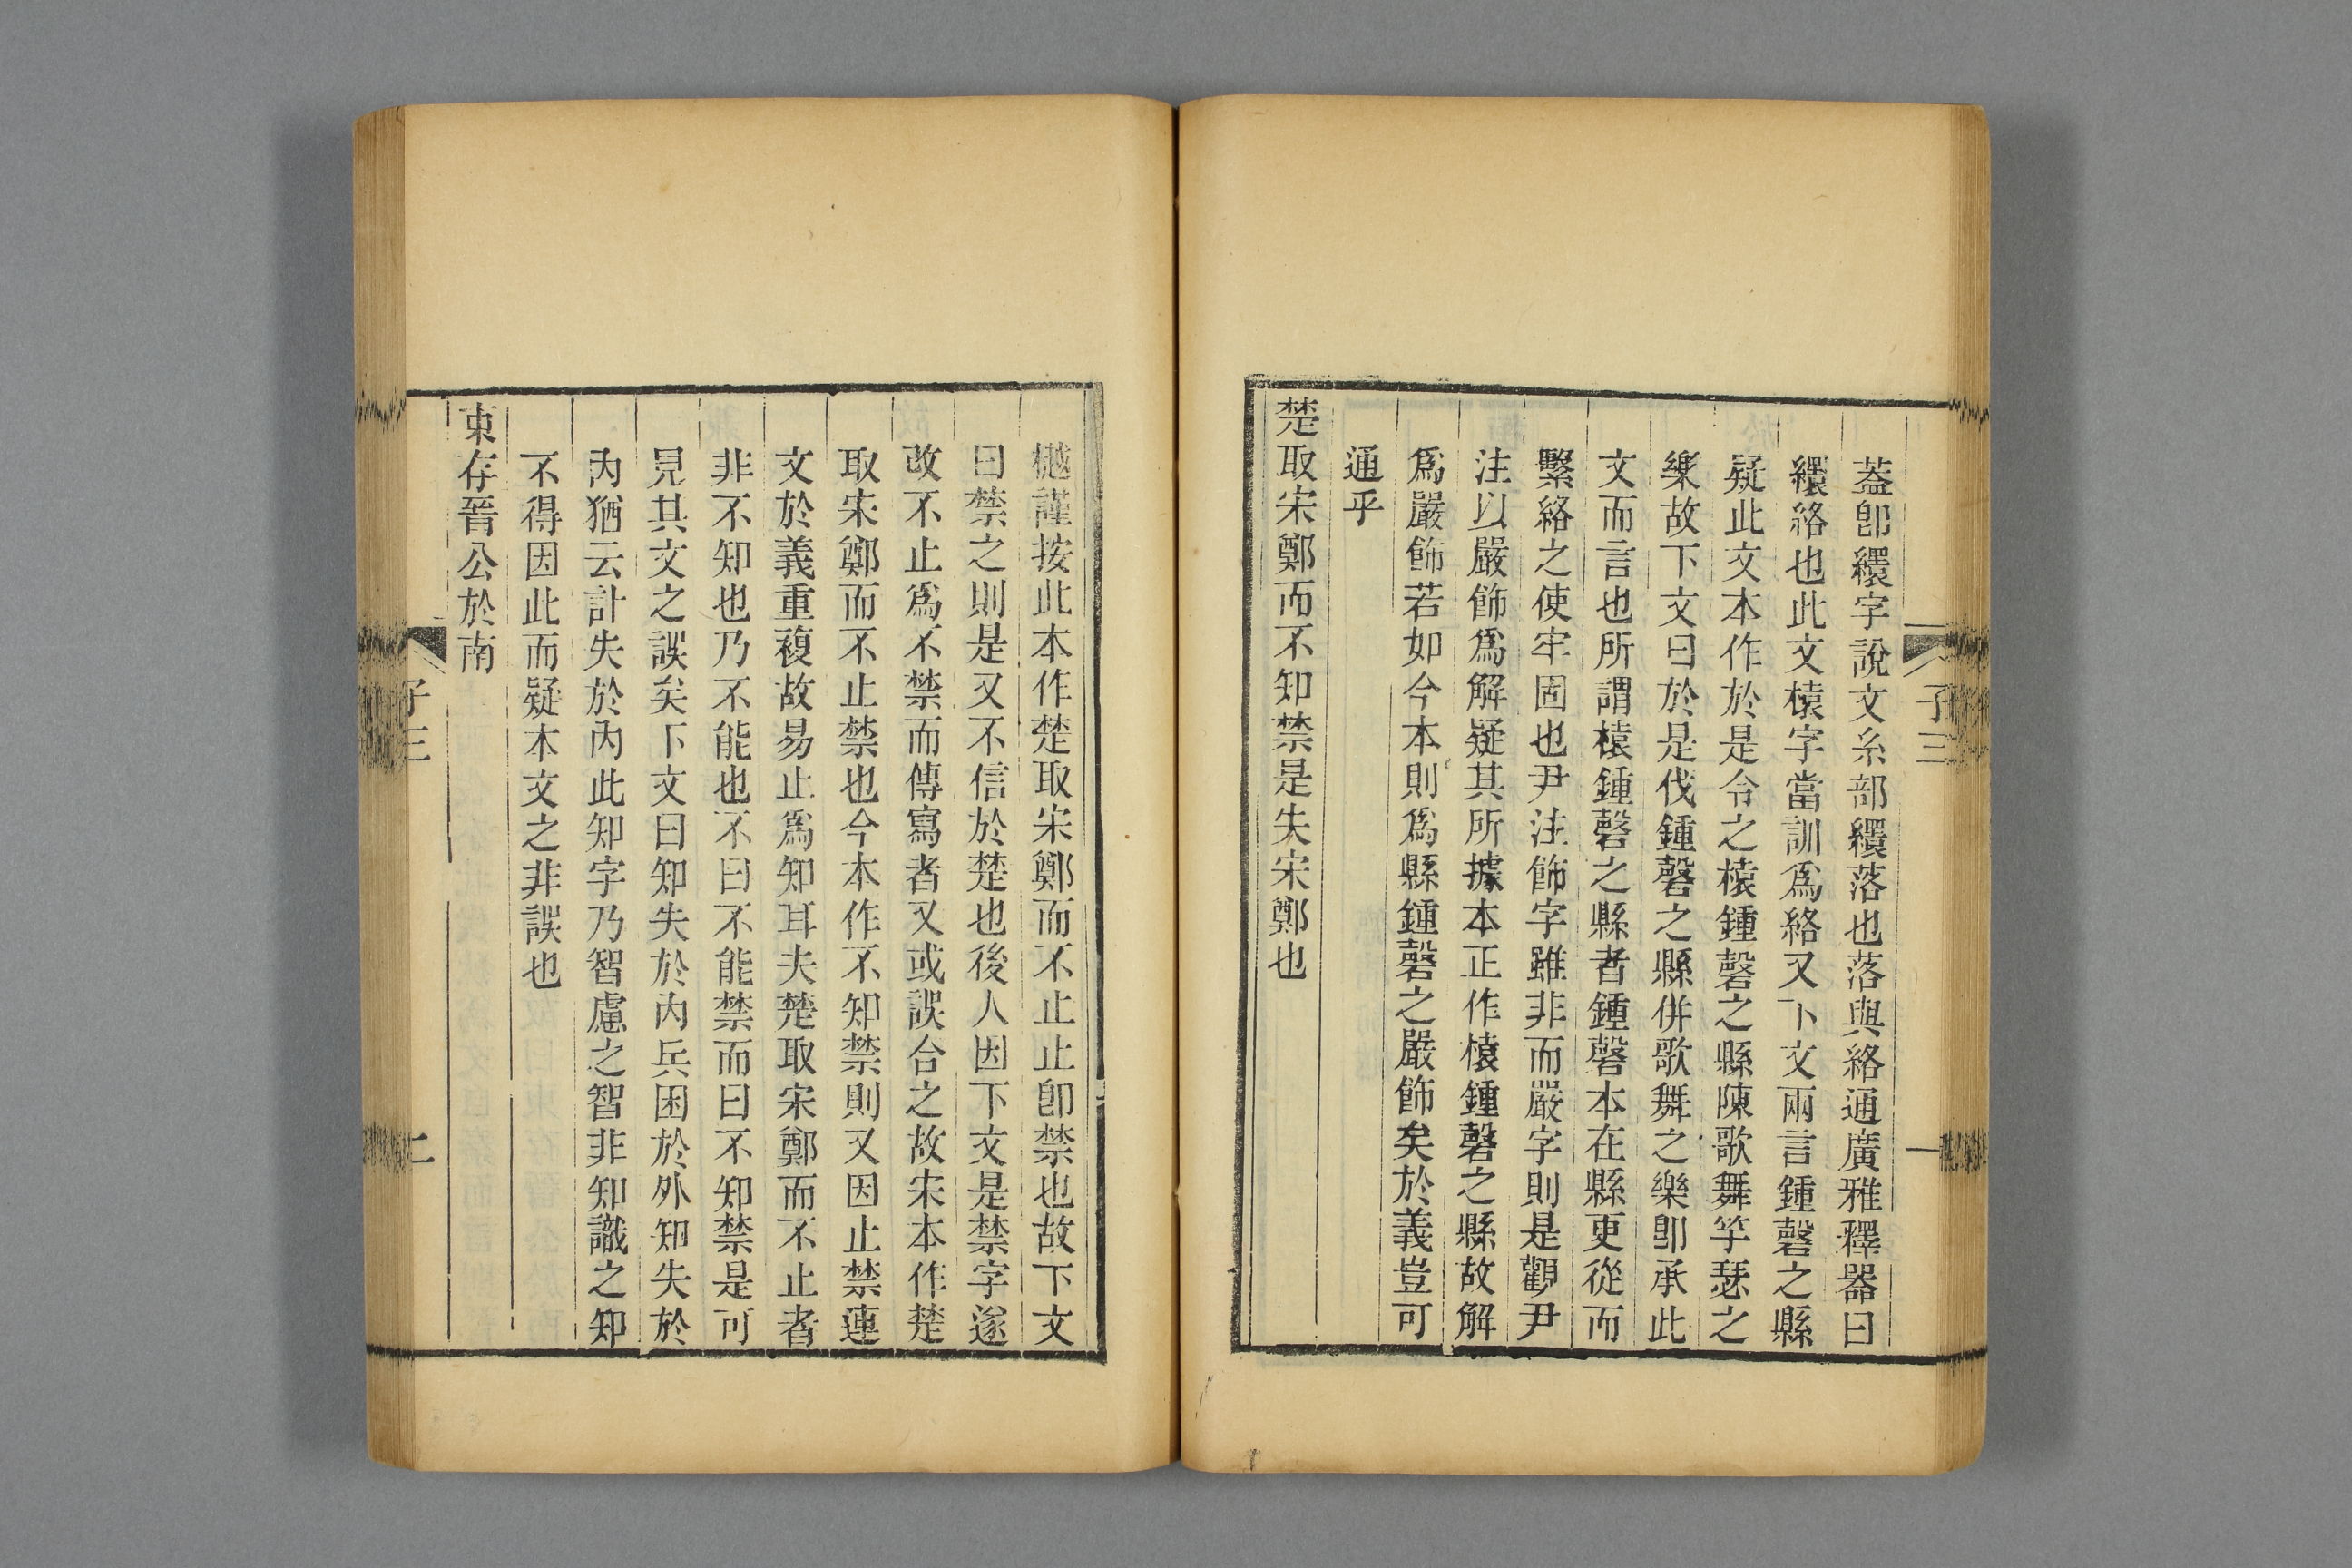 子三
一
蓋卽繯字說文糸部繯落也落與絡通廣雅釋器曰
繯絡也此文榬字當訓爲絡又下文兩言鍾磬之縣
疑此文本作於是令之榬鍾磬之縣陳歌舞竽瑟之
樂故下文曰於是伐鍾磬之縣併歌舞之樂卽承此
文而言也所謂榬鍾磬之縣者鍾磬本在縣更從而
繫絡之使牢固也尹注飾字雖非而嚴字則是觀尹
注以嚴飾爲解疑其所據本正作榬鍾磬之縣故解
爲嚴飾若如今本則爲縣鍾磬之嚴飾矣於義豈可
通乎
楚取宋鄭而不知禁是失宋鄭也
樾謹按此本作楚取宋鄭而不止止卽禁也故下文
曰禁之則是又不信於楚也後人因下文是禁字遂
改不止爲不禁而傳寫者又或誤合之故宋本作楚
取宋鄭而不止禁也今本作不知禁則又因止禁連
文於義重複故易止爲知耳夫楚取宋鄭而不止者
非不知也乃不能也不曰不能禁而曰不知禁是可
見其文之誤矣下文曰知失於內兵困於外知失於
內猶云計失於內此知字乃智慮之智非知識之知
不得因此而疑本文之非誤也
東存晉公於南
子三
二